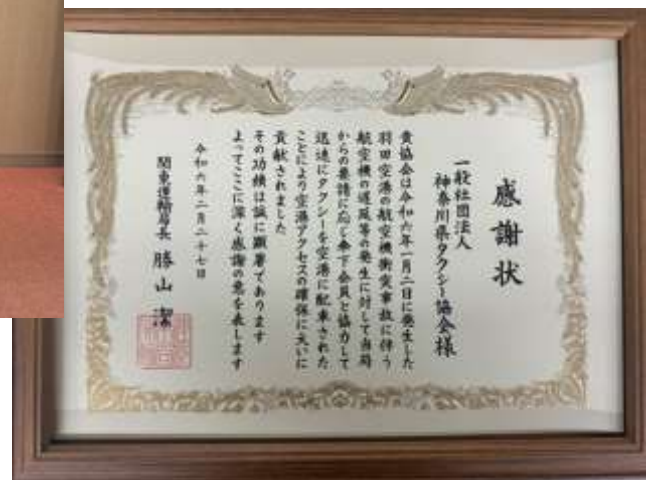 感謝状
一般社団法人
神奈川県タクシー協会様
貴協会は令和六年一月二日に発生した
羽田空港の航空機衝突事故に伴う
航空機の遅延等の発生に対して当局
からの要請に応じ傘下会員と協力して
迅速にタクシーを空港に配車された
ことにより空港アクセスの確保に大いに
貢献されました
その功績は誠に顕著であります
よってここに深く感謝の意を表します
令和六年二月二十七日
関東運輸局長 勝山 潔